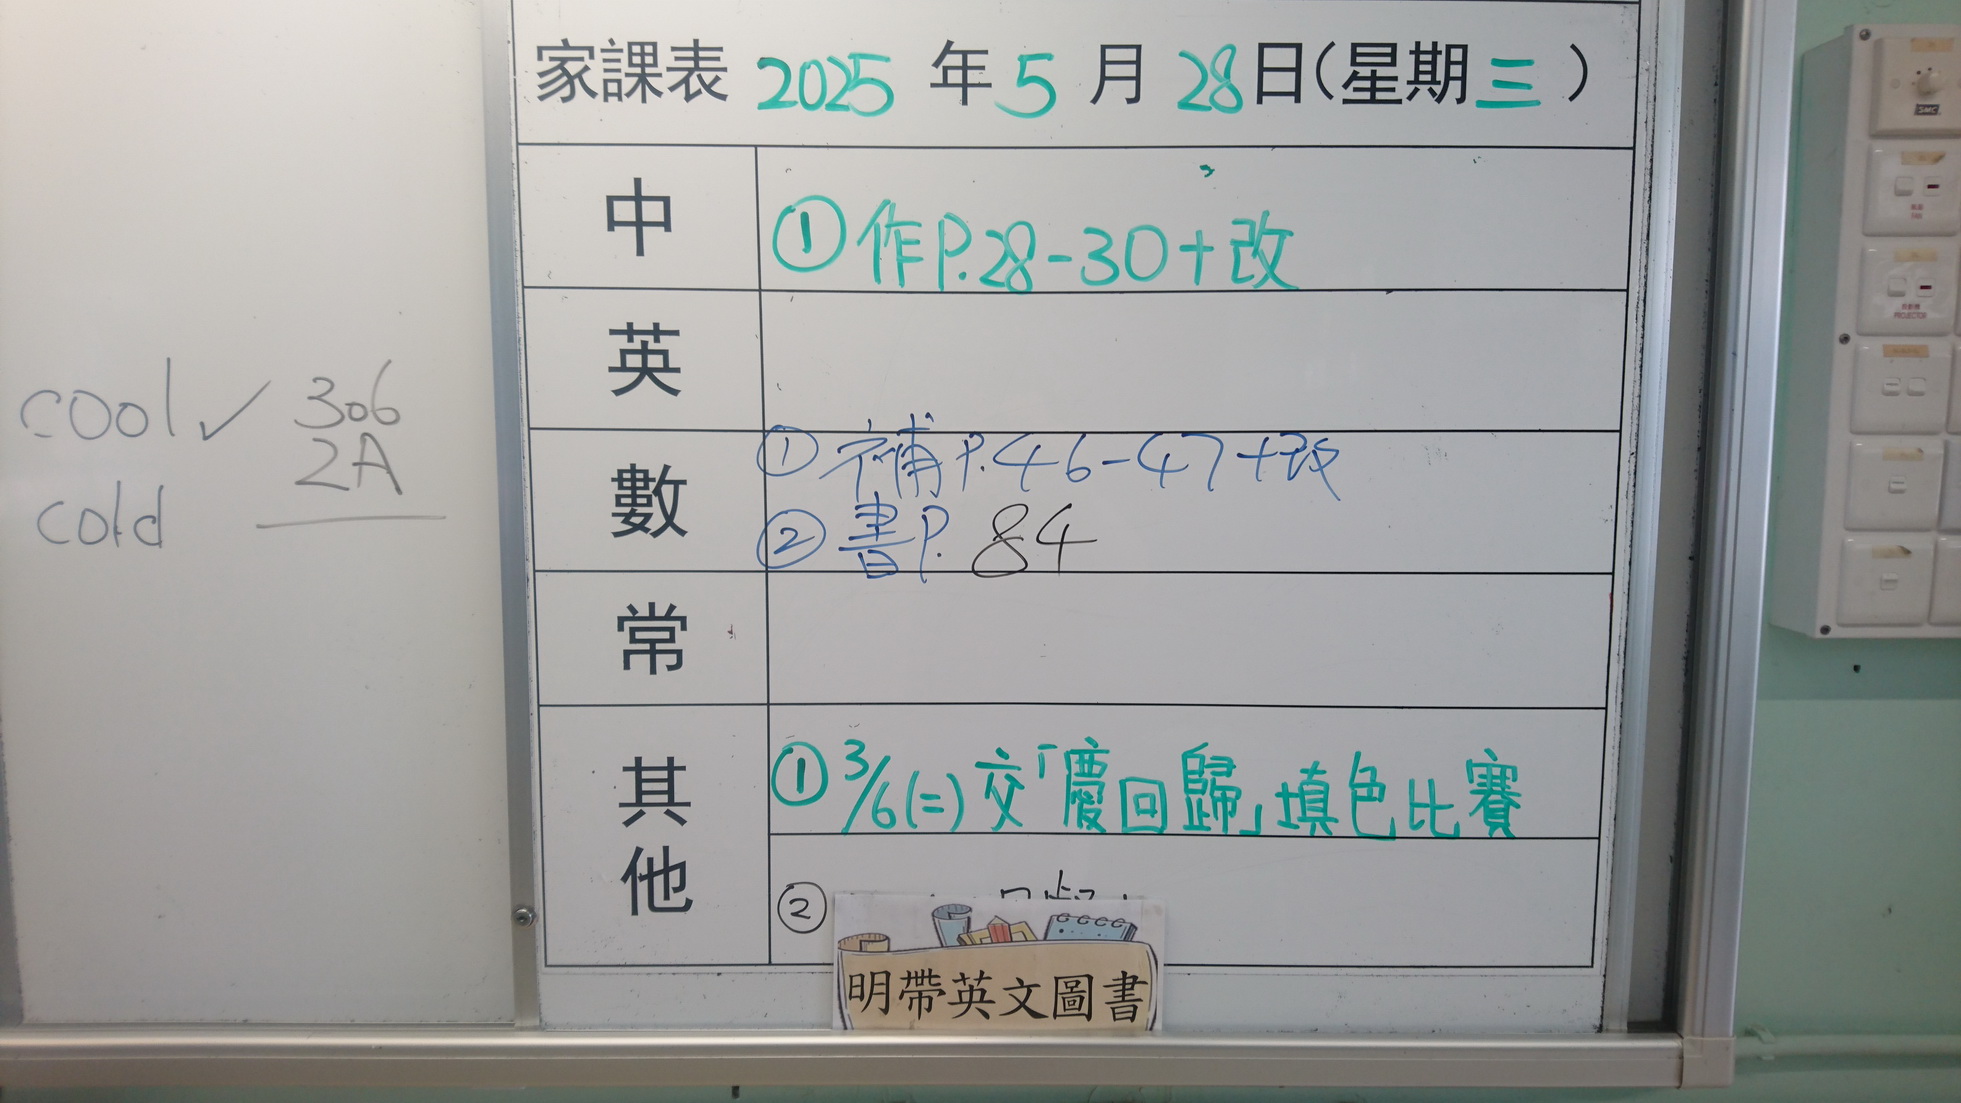 家課表 2025 年 5 月 28 日(星期三)
中
① 作P.28-30+改
英
數
① 補P.46-47+改
② 書P. 84
常
其他
① 3/6(二)交「慶回歸」填色比賽
②
明帶英文圖書
cool ✓
cold
306
2A
SMC
PROJECTOR